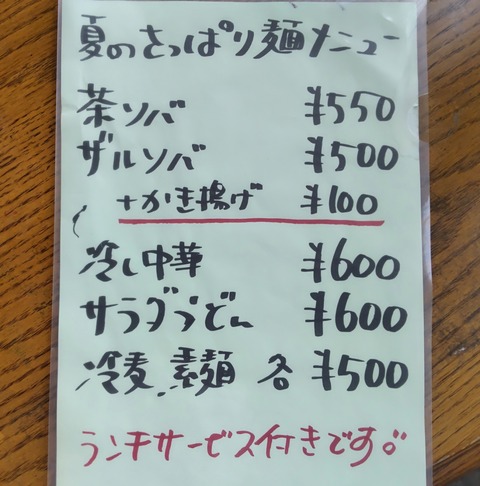 夏のさっぱり麺メニュー
茶ソバ ¥550
ザルソバ ¥500
+かき揚げ ¥100
冷し中華 ¥600
サラダうどん ¥600
冷麦、素麺 各 ¥500
ランチサービス付きです。